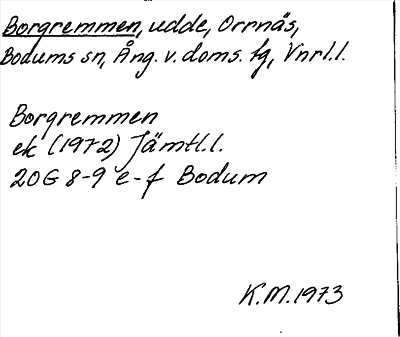 Borgremmen, udde, Orrnäs,
Bodums sn, Ång. v. doms. tg, Vnrl.l.
Borgremmen
ek (1972) Jämtl.l.
20G 8-9 e-f Bodum
K.M. 1973